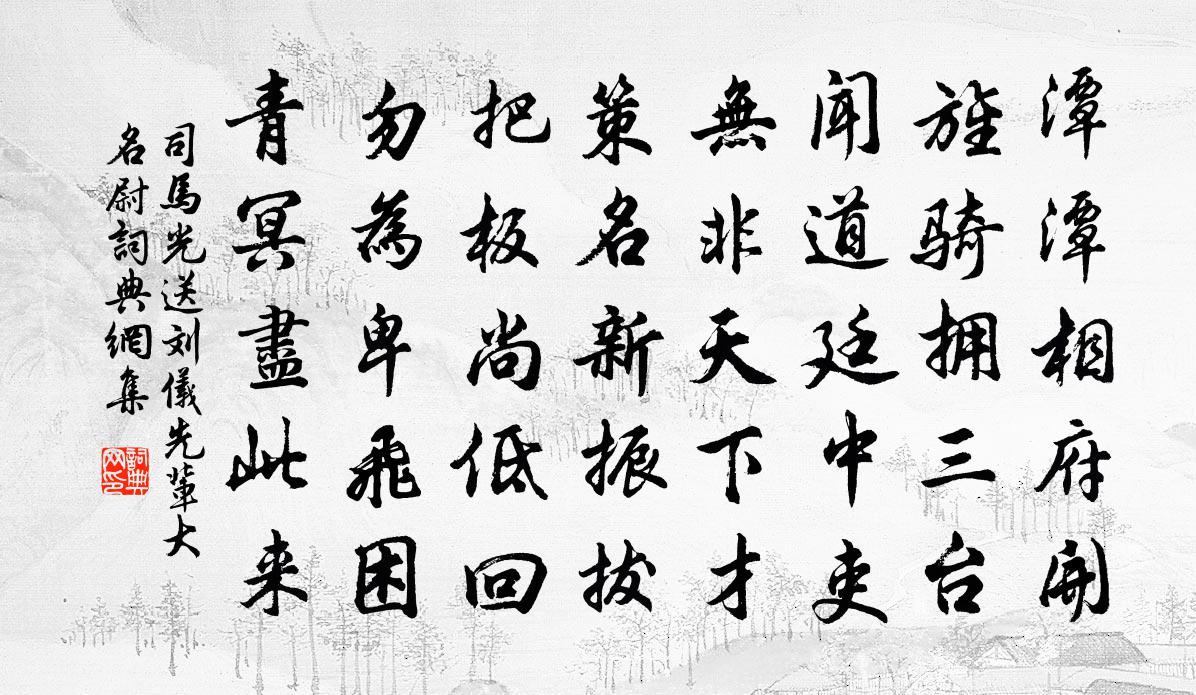 潭潭相府開
旌骑拥三台
闻道廷中吏
無非天下才
策名新振拔
把板尚低回
勿為卑飛困
青冥盡此来
司馬光送刘儀先輩大
名尉詞典網集
詞典网印